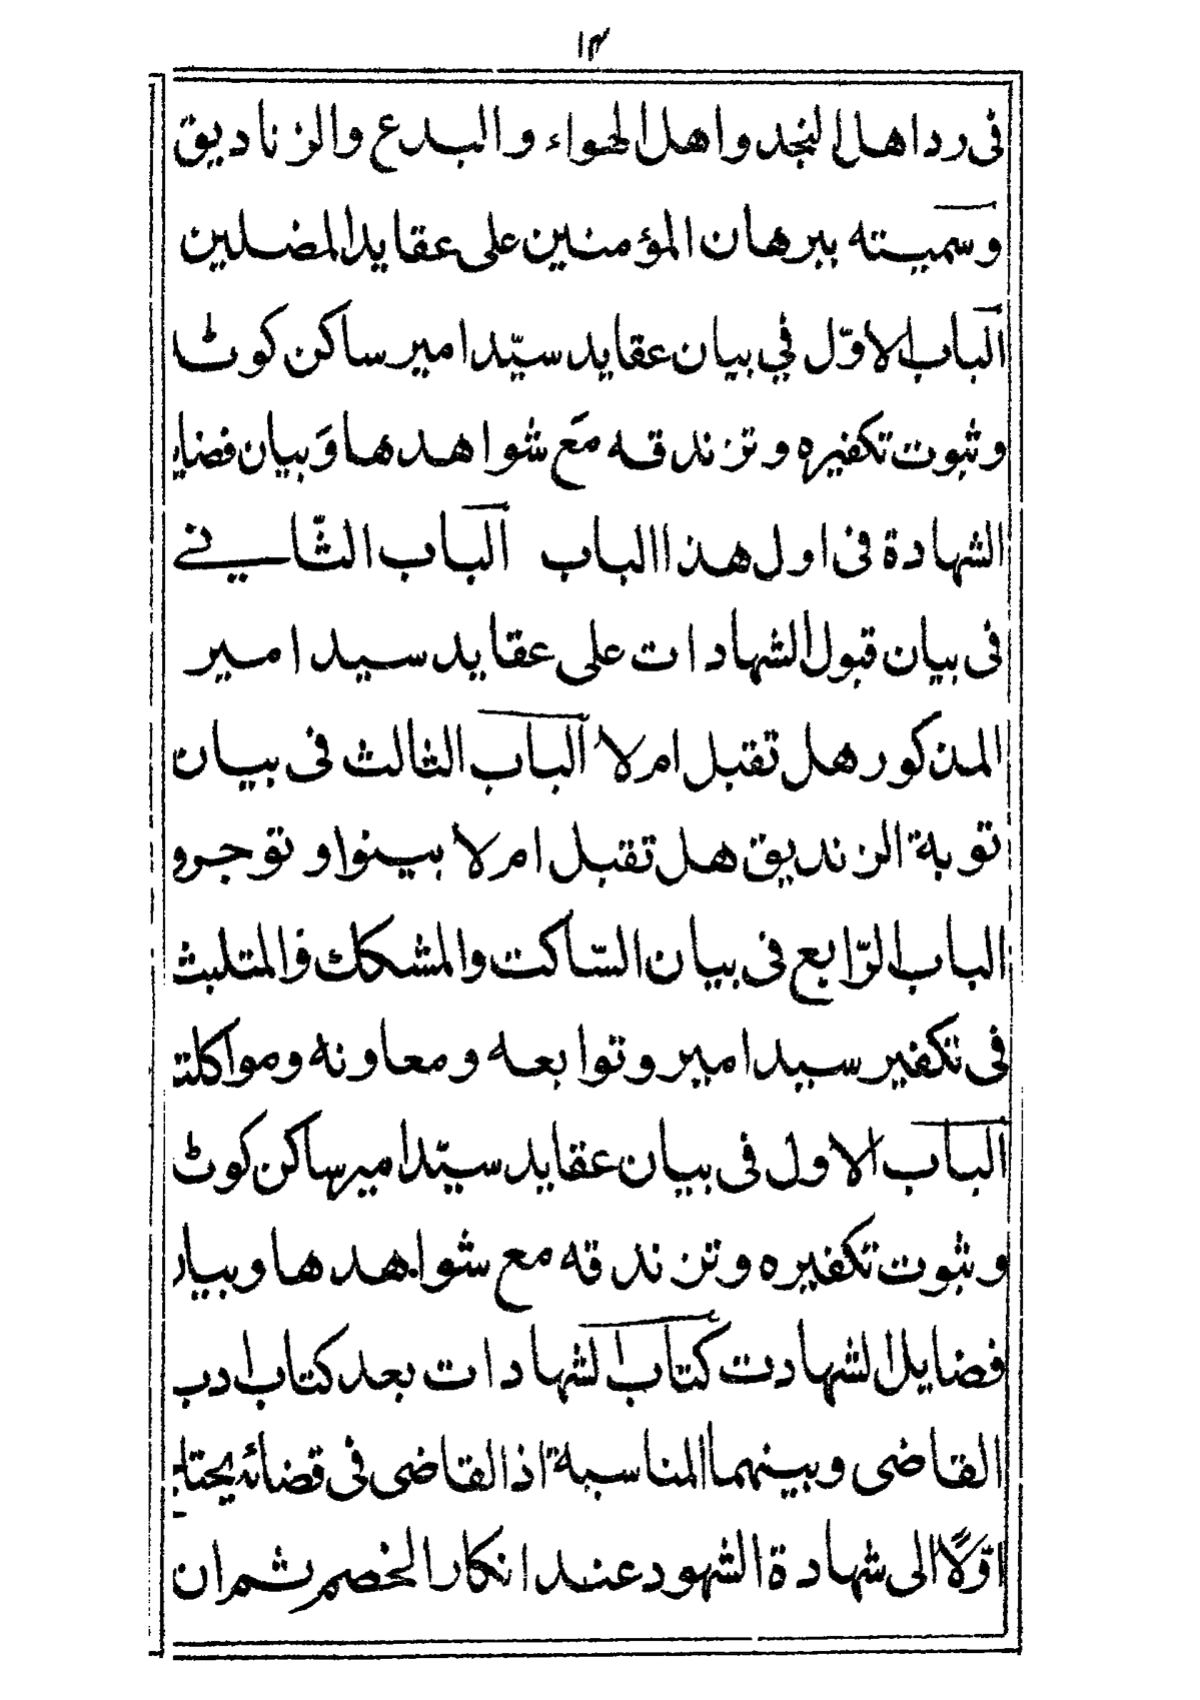 ١٣
فى رد اهل النجد واهل الهواء والبدع والزناديق
وسميته ببرهان المؤمنين على عقايد المضلين
الباب الاوّل في بيان عقايد سيّد امير ساكن كوٹ
وثبوت تكفيره وتزندقه مَع شواهدها وَبيان فضاي
الشهادة فى اول هذا الباب الباب الثّاني
فى بيان قبول الشهادات على عقايد سيد امير
المذكور هل تقبل ام لا الباب الثالث فى بيان
توبة الزنديق هل تقبل ام لا بينوا وتوجرو
الباب الرّابع فى بيان السّاكت والمشكك والمتلبث
فى تكفير سيد امير وتوابعه ومعاونه ومواكلت
الباب الاول فى بيان عقايد سيّد امير ساكن كوٹ
وثبوت تكفيره وتزندقه مع شواهدها وبيان
فضايل الشهادت كتاب الشهادات بعد كتاب ادب
القاضى وبينهما المناسبة اذ القاضى فى قضائه يحتاج
اوّلًا الى شهادة الشهود عند انكار الخصم ثم ان